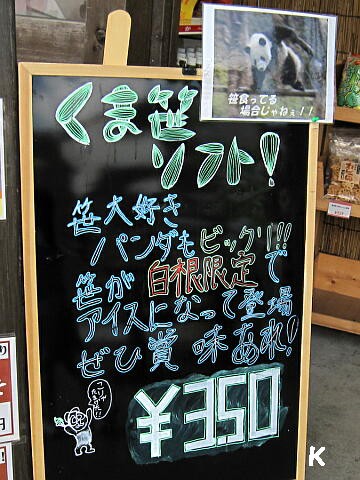 笹食ってる
場合じゃねぇ!!
くま笹
ソフト!
笹大好き
パンダもビックリ!!
笹が白根限定で
アイスになって登場
ぜひ賞味あれ!
¥350
K